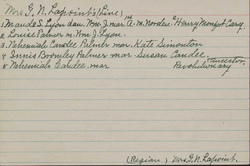 Mrs G. N. Lapoint's Line;
1 Maude S. Lyon dau. Wm. J. mar 1st A. M. Norder 2d Henry Monfort Carey.
2 Louise Palmer m. Wm J. Lyon.
3 Nehemiah Candee Palmer mar. Kate Simonton
4 Innis Bromley Palmer mar Susan Candee
5 Nehemiah Candee. mar Revolutionary ancestor.
(Regian) Mrs. G. N. Lapoint.